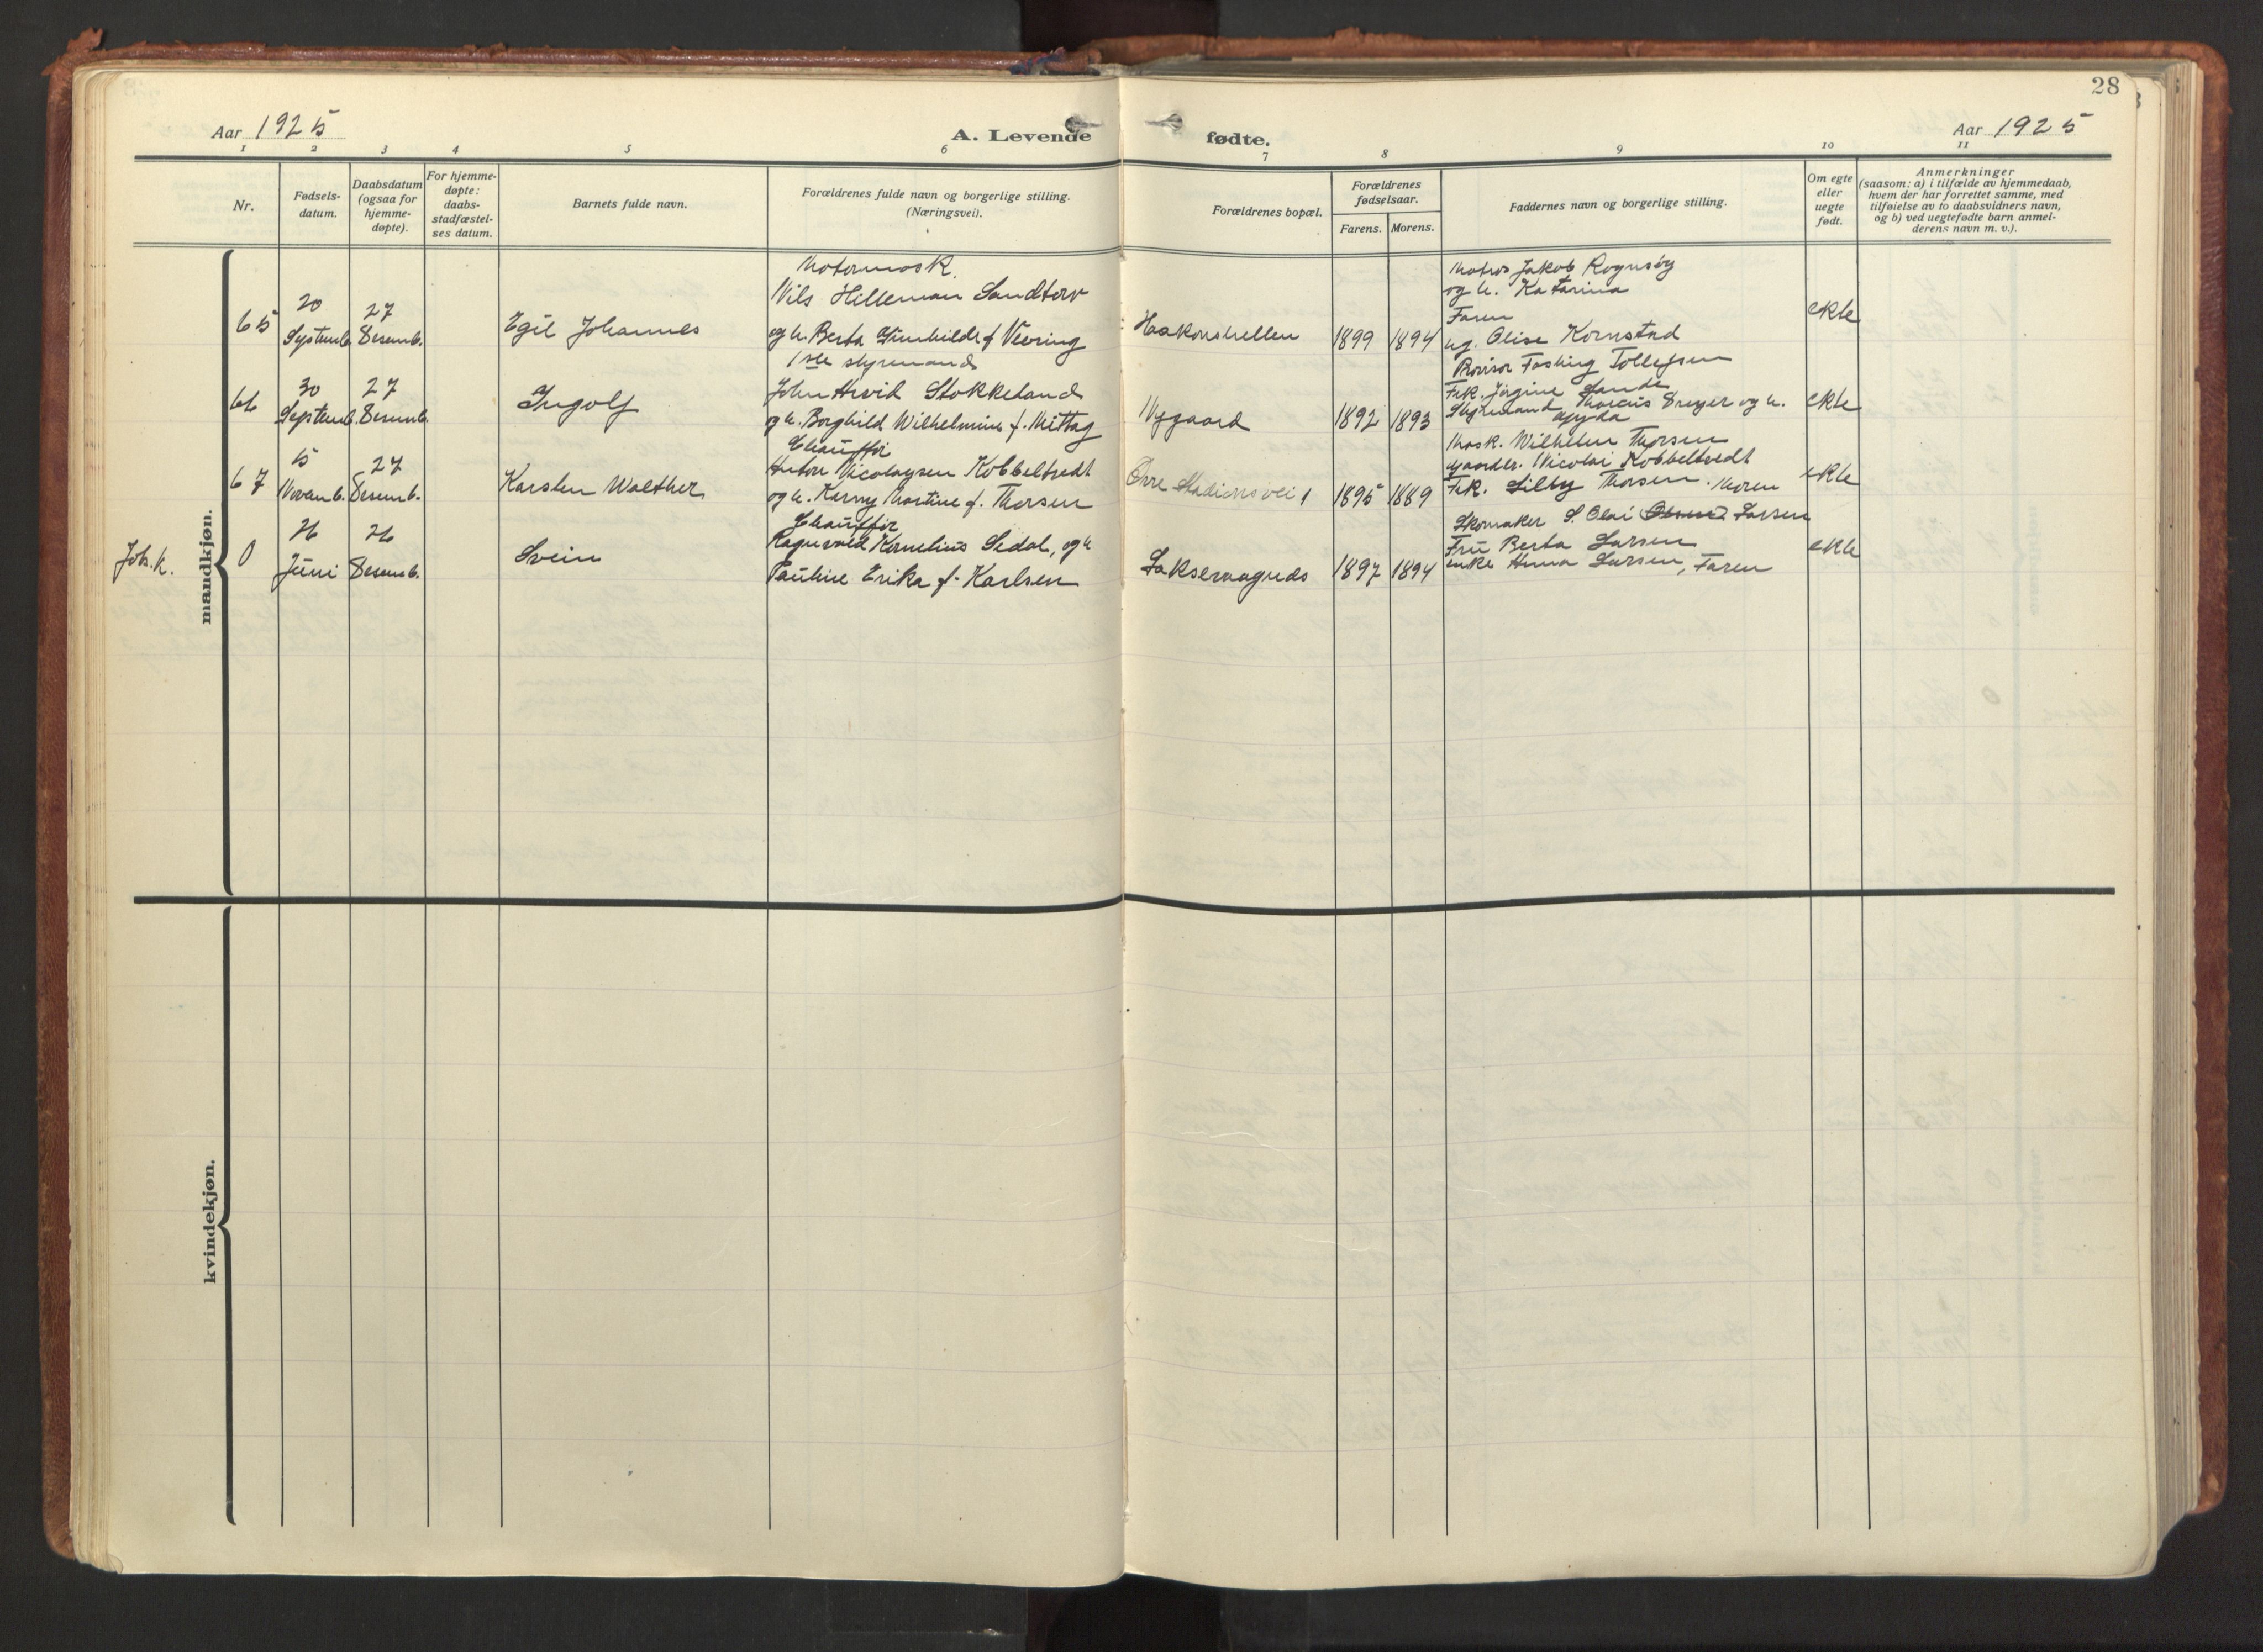 28
Aar 1925
A. Levende
fødte.
Aar 1925
1 2 3 4 5 6 7 8 9 10 11
Nr.
Fødsels-
datum.
Daabsdatum
(ogsaa for
hjemme-
døpte).
For hjemme-
døpte:
daabs-
stadfæstel-
ses datum.
Barnets fulde navn.
Forældrenes fulde navn og borgerlige stilling.
(Næringsvei).
Forældrenes bopæl.
Forældrenes
fødselsaar.
Farens. Morens.
Faddernes navn og borgerlige stilling.
Om egte
eller
uegte
født.
Anmerkninger
(saasom: a) i tilfælde av hjemmedaab,
hvem der har forrettet samme, med
tilføielse av to daabsvidners navn,
og b) ved uegtefødte barn anmel-
derens navn m. v.).
mandkjøn.
65
20
Septemb.
27
Desemb.
Egil Johannes
Motormask.
Nils Hilleman Sandtorv
og h. Berta Gunhilda f. Vevring
Haakonshellen
1899
1894
Matros Jakob Rognsøy
og h. Katarina
Faren
ug. Olise Kornstad
ekte
66
30
Septemb.
27
Desemb.
Ingolf
1ste styrmand
John Arvid Stokkeland
og h. Borghild Wilhelmine f. Mittag
Nygaard
1892
1893
Provisor Fasting Tollefsen
Frk. Jørgine Sande
Styrmand Marcus Dreyer og h.
Agyda
ekte
67
15
Novemb.
27
Desemb.
Karsten Walther
Chauffør
Anton Nicolaysen Kobbeltvedt
og h. Kerny Martine f. Thorsen
Øvre Stadionsvei 1
1895
1889
Mask. Wilhelm Thorsen
Gaardbr. Nicolai Kobbeltvedt
Frk. Lilly Thorsen. Moren
ekte
Joh. k.
0
26
Juni
26
Desemb.
Svein
Chauffør
Ragnvald Kornelius Sedal, og h
Pauline Erika f. Karlsen
Laksevaagneds
1897
1894
Skomaker S. Olai Larsen
Fru Berta Larsen
enke Anna Larsen, Faren
ekte
kvindekjøn.